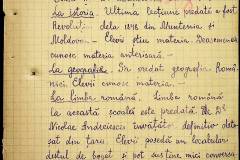 La Istoria. Ultima lecţiune predată a fost
Revoluţ. dela 1848 din Muntenia şi
Moldova. Elevii ştiu materia. Deasemenea
cunosc materia anterioară.
La geografie. S'a predat geografia Româ
niei. Elevii cunosc materia.
La limba română. Limba română
La această şcoală este predată de Dl
Nicolae Andreescu învăţător definitiv deta-
şat din ţară. Elevii posedă un vocabular
destul de bogat şi pot susţine mici conversa